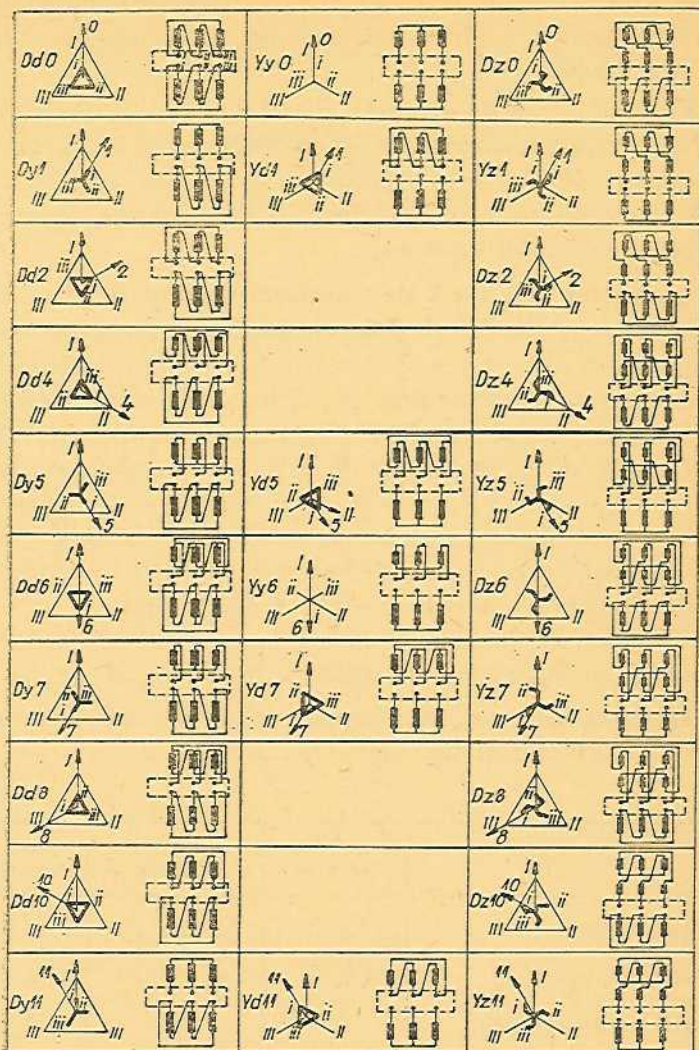 Dd0 I 0 i iii ii III II
Yy0 I 0 i iii ii III II
Dz0 I 0 i iii ii III II
Dy1 I 1 i iii ii III II
Yd1 I 1 i iii ii III II
Yz1 I 1 i iii ii III II
Dd2 I iii i 2 ii III II
Dz2 I i 2 iii ii III II
Dd4 I iii ii i III II 4
Dz4 I iii ii i III II 4
Dy5 I iii ii i III II 5
Yd5 I iii ii i III II 5
Yz5 I iii ii i III II 5
Dd6 I ii iii i III II 6
Yy6 I ii iii i III II 6
Dz6 I III II 6
Dy7 I ii iii i III II 7
Yd7 I ii iii III II 7
Yz7 I ii iii i III II 7
Dd8 I ii i iii III II 8
Dz8 I ii i iii III II 8
Dd10 I 10 i ii iii III II
Dz10 I 10 i ii iii III II
Dy11 I 11 i ii iii III II
Yd11 I 11 i ii iii III II
Yz11 I 11 i ii iii III II